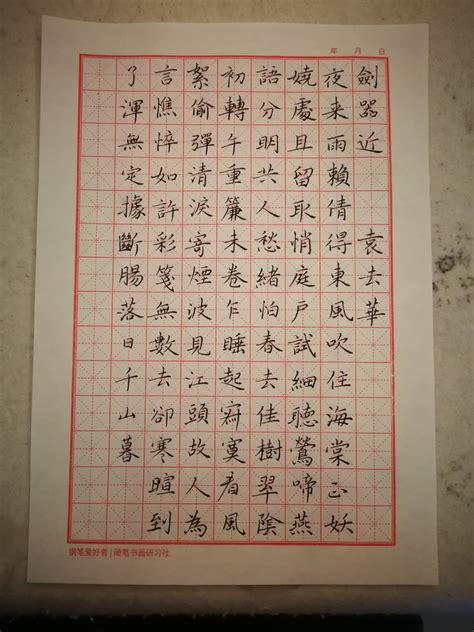 年 月 日
劍器近 袁去華
夜来雨賴倩得東風吹住海棠正妖
嬈處且留取悄庭戶試細聽鶯啼燕
語分明共人愁緒怕春去佳樹翠陰
初轉午重簾未卷乍睡起寂寞看風
絮偷彈清淚寄煙波見江頭故人為
言憔悴如許彩箋無數去卻寒暄到
了渾無定據斷腸落日千山暮
钢笔爱好者 | 硬笔书画研习社